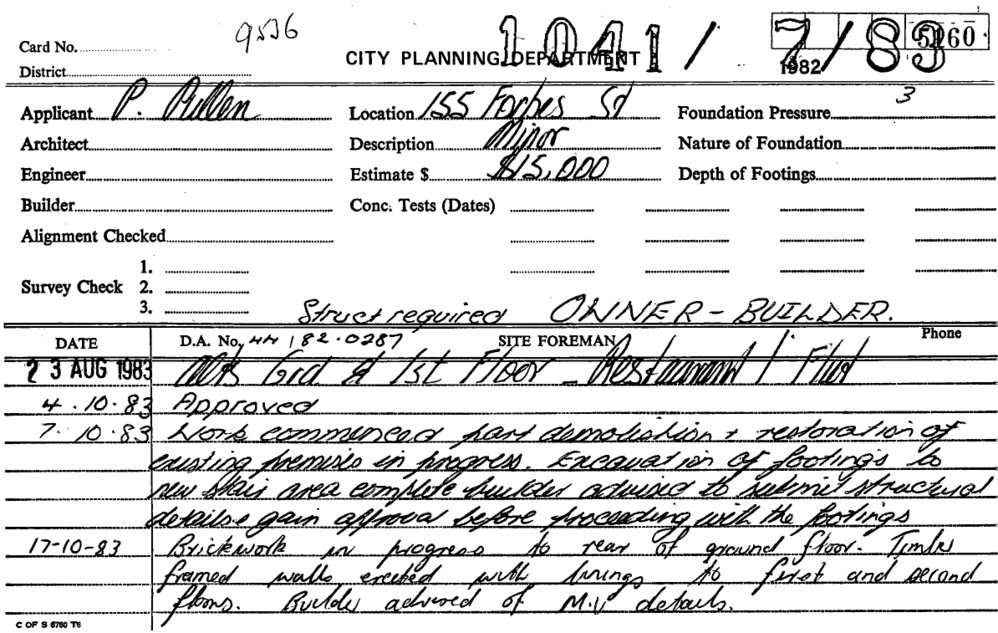 9536
Card No.
CITY PLANNING DEPARTMENT 1041 / 7/83
5160
1982
District
Applicant P. Pullen Location 155 Forbes St Foundation Pressure 3
Architect Description Minor Nature of Foundation
Engineer Estimate $ $15,000 Depth of Footings
Builder Conc. Tests (Dates)
Alignment Checked
1.
Survey Check 2.
3.
Struct required OWNER - BUILDER.
DATE D.A. No. 44 / 82.0287 SITE FOREMAN Phone
23 AUG 1983 Alts Grd & 1st Floor - Restaurant / Flat
4.10.83 Approved
7.10.83 Work commenced part demolistion + restoration of
existing premises in progress. Excavation of footings to
new stair area complete builder advised to submit structural
details & gain approval before proceeding with the footings
17-10-83 Brickwork in progress to rear of ground floor. Timber
framed walls erected with linings to first and second
floors. Builder advised of M.V details.
C OF S 6760 T6